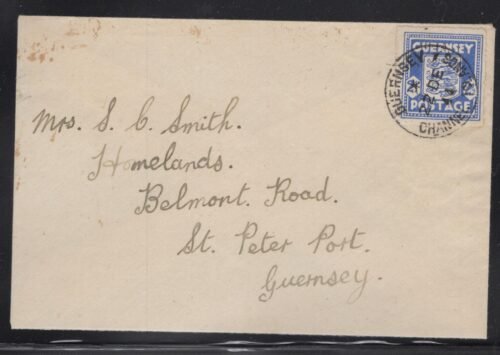 GUERNSEY
POSTAGE
GUERNSEY
CHANNEL
22 DE
Mrs. S. C. Smith.
Homelands.
Belmont Road.
St. Peter Port.
Guernsey.